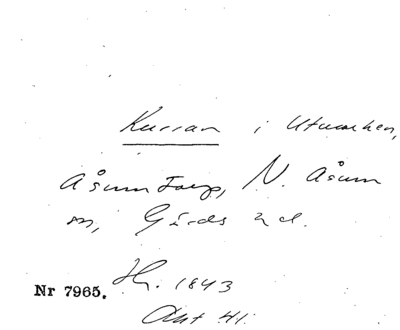 Kurran i Utmarken,
Åsumtorp, N. Åsum
sn, Gärds hd.
Hr. 1843
Nr 7965.
Akt 41.